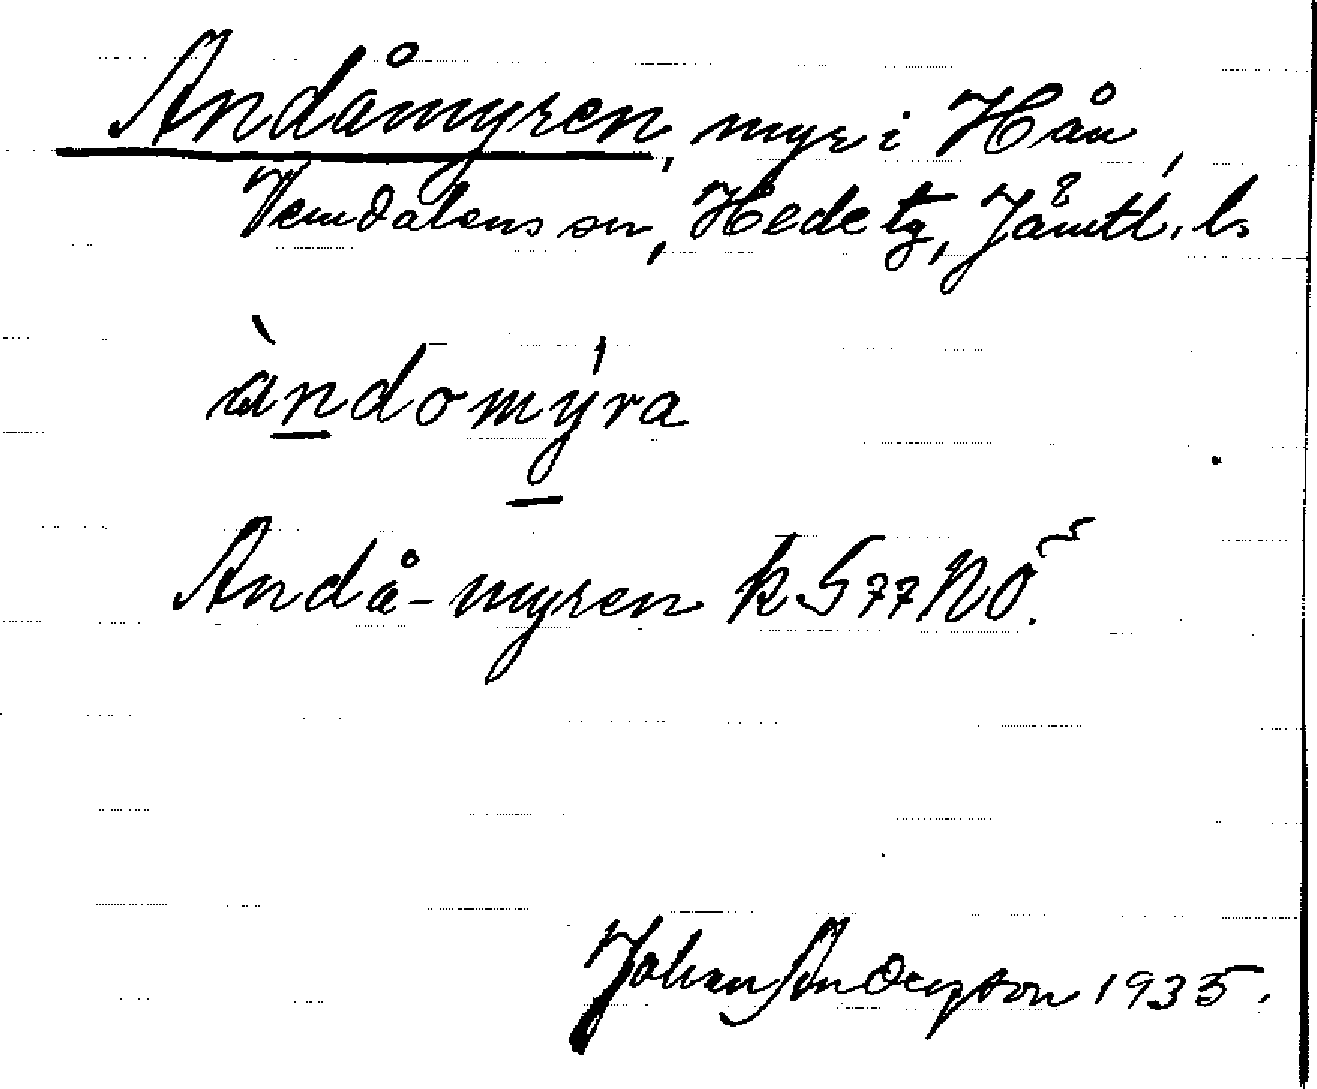 Andåmyren, myr i Hån,
Vemdalens sn, Hede tg, Jämtl. ls
àndomýra
Andå-myren k. S 77 NO.
Johan Anderzon 1935.